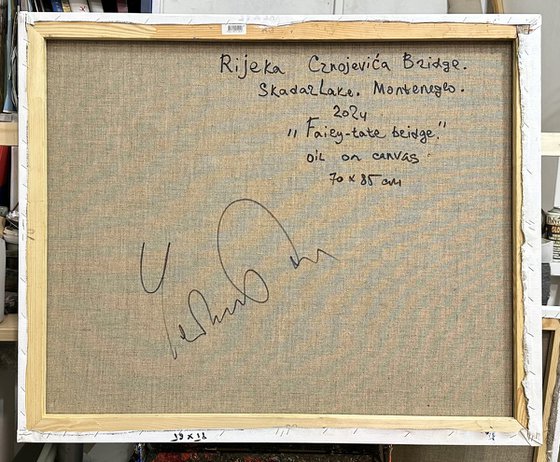 Rijeka Crnojevića Bridge.
Skadar Lake. Montenegro.
2024
„Fairy-tale bridge."
oil on canvas
70 x 85 cm